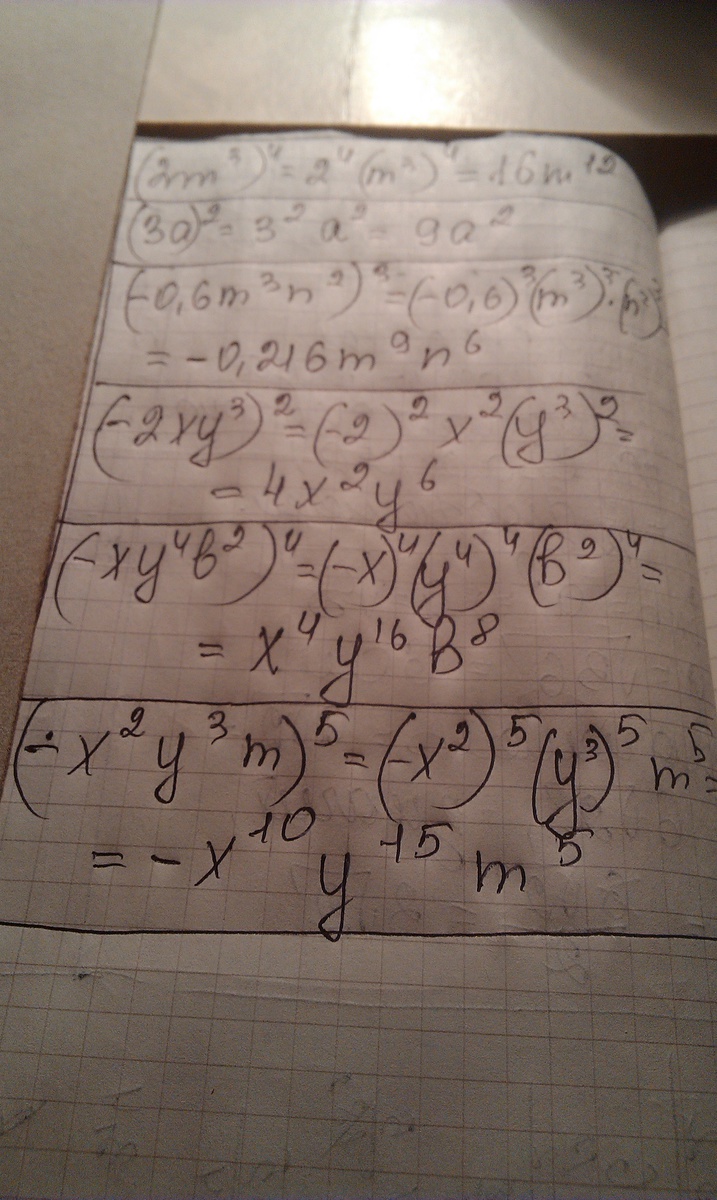 (2m³)⁴ = 2⁴ (m³)⁴ = 16m¹²
(3a)² = 3² a² = 9a²
(-0,6m³n²)³ = (-0,6)³(m³)³·(n²)³
= -0,216m⁹n⁶
(-2xy³)² = (-2)² x² (y³)² =
= 4x²y⁶
(-xy⁴b²)⁴ = (-x)⁴(y⁴)⁴(b²)⁴ =
= x⁴y¹⁶b⁸
(-x²y³m)⁵ = (-x²)⁵(y³)⁵m⁵ =
= -x¹⁰y¹⁵m⁵